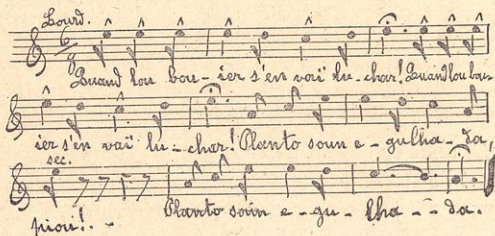 Lourd.
Quand lou bou-ier s'en vaï lu-char! Quand lou bou-
ier s'en vaï lu-char! Planto soun e-gulha-da,
sec.
piou!..
Planto soun e-gu-lha--da.